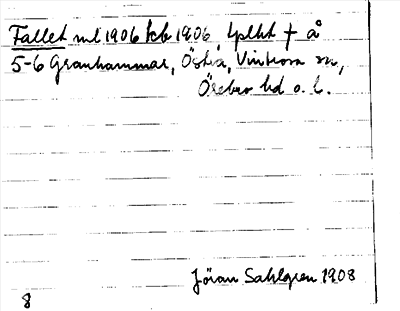 Fallet ml 1906 fcb 1906, tplht † å
5-6 Granhammar, Östra, Vintrosa sn,
Örebro hd o. l.
Jöran Sahlgren 1908
8